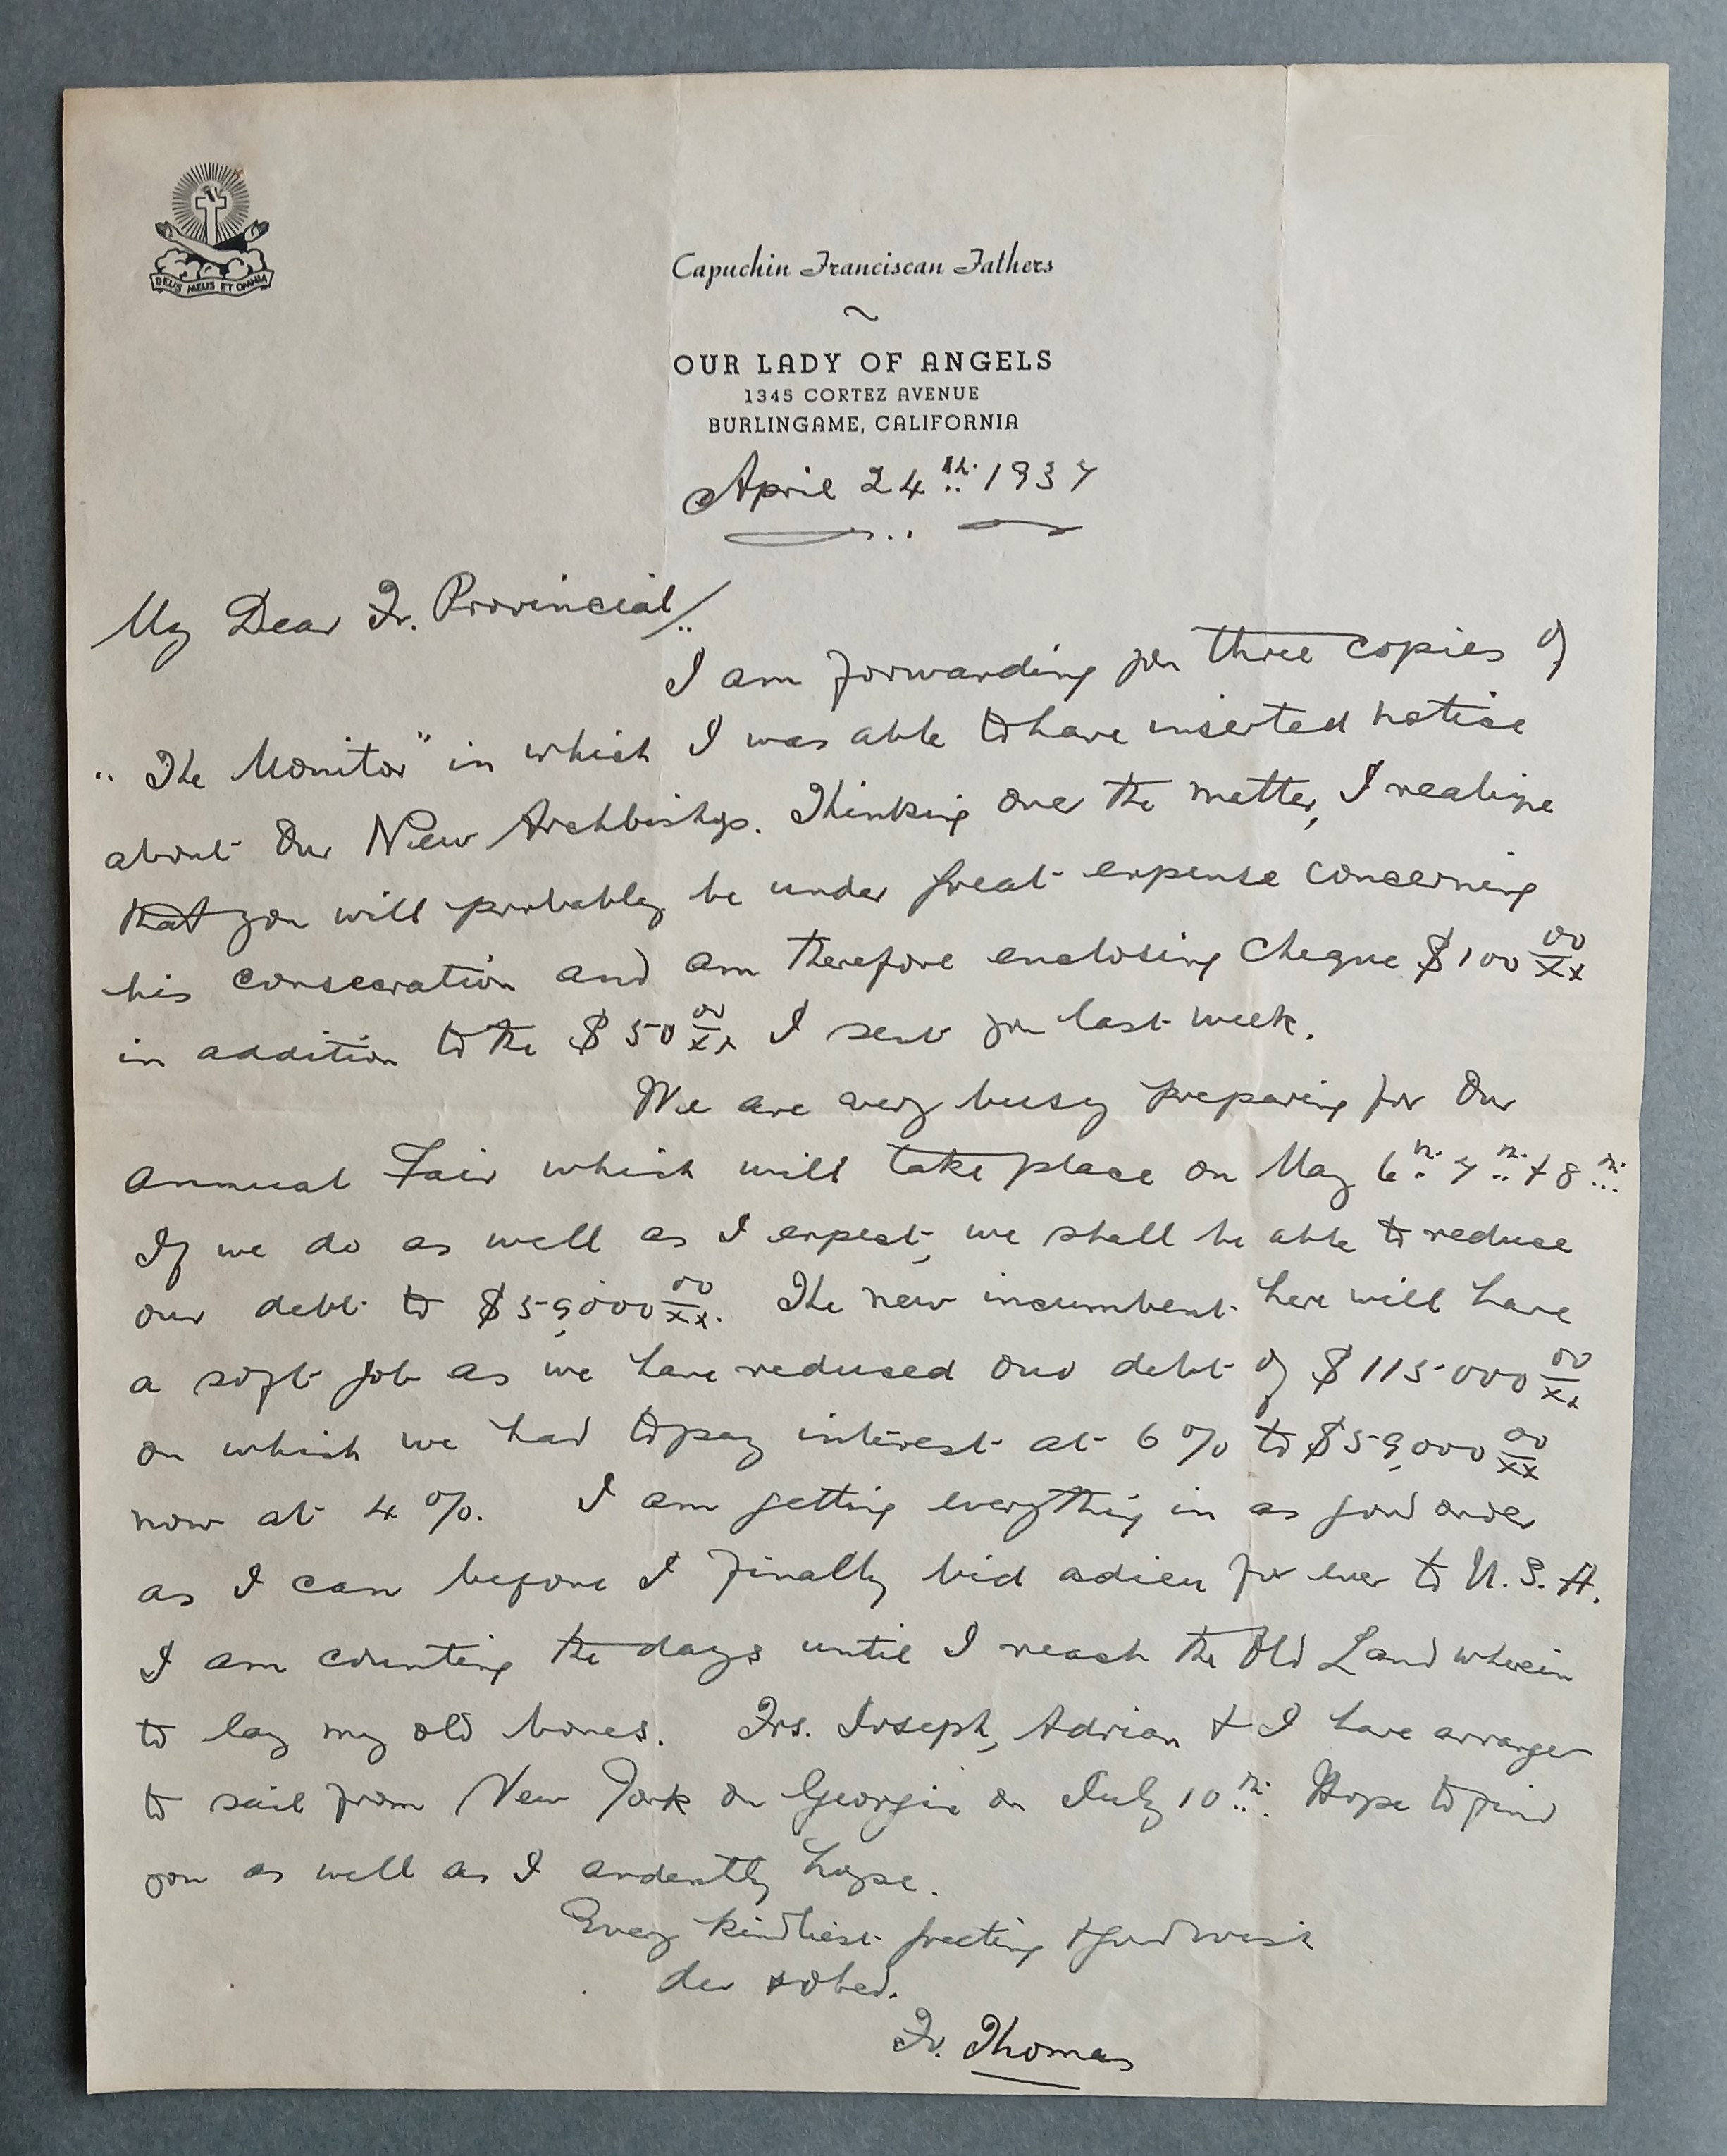 DEUS MEUS ET OMNIA
Capuchin Franciscan Fathers
~
OUR LADY OF ANGELS
1345 CORTEZ AVENUE
BURLINGAME, CALIFORNIA
April 24th. 1937
My Dear Fr. Provincial/..
I am forwarding you three copies of
"The Monitor" in which I was able to have inserted notice
about Our New Archbishop. Thinking over the matter, I realize
that you will probably be under great expense concerning
his consecration and am therefore enclosing cheque $100 00/xx
in addition to the $50 00/xx I sent you last week.
We are very busy preparing for Our
Annual Fair which will take place on May 6th. 7th. + 8th.
If we do as well as I expect, we shall be able to reduce
our debt to $59,000 00/xx. The new incumbent here will have
a soft job as we have reduced our debt of $115000 00/xx
on which we had to pay interest at 6% to $59,000 00/xx
now at 4%. I am getting everything in as good order
as I can before I finally bid adieu for ever to U.S.A.
I am counting the days until I reach the Old Land wherein
to lay my old bones. Frs. Joseph, Adrian + I have arranged
to sail from New York on Georgic on July 10th. Hope to find
you as well as I ardently hope.
Every kindliest greeting + good wish
dev + obed.
Fr. Thomas